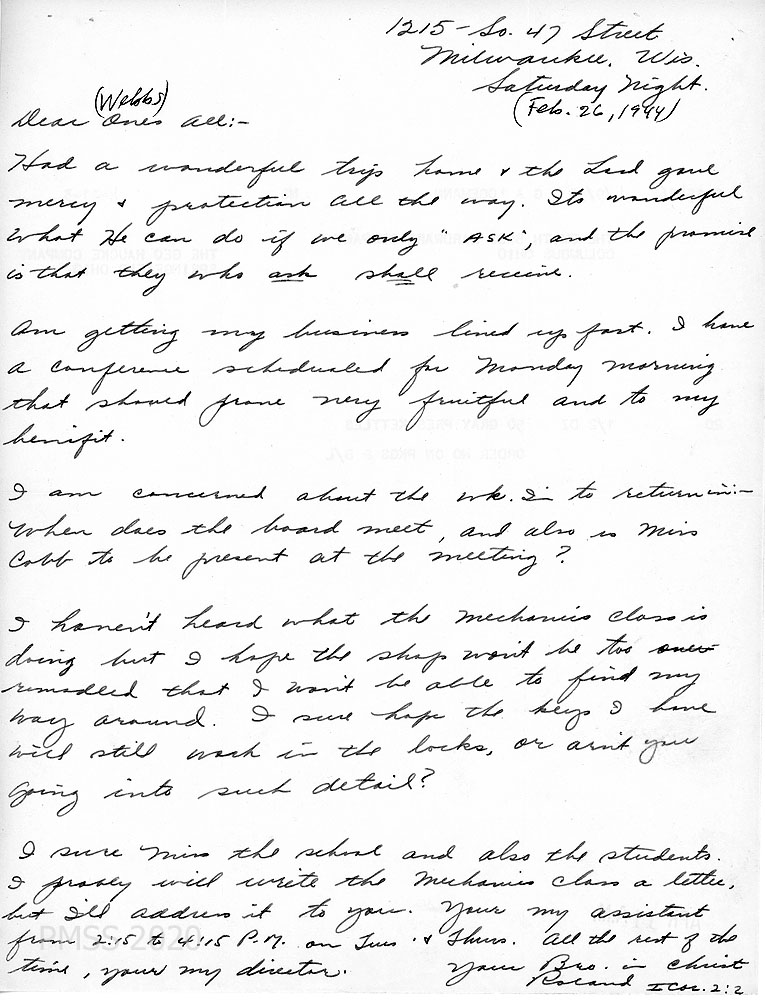 1215 - So. 47 Street
Milwaukee, Wis.
Saturday Night.
(Feb. 26, 1944)
(Webbs)
Dear Ones all:-
Had a wonderful trip home & the Lord gave
mercy & protection all the way. Its wonderful
what He can do if we only "ASK", and the promise
is that they who ask shall receive.
Am getting my business lined up fast. I have
a conference schedualed for Monday morning
that should prove very fruitful and to my
benifit.
I am concerned about the wk. I'm to return in:-
When does the board meet, and also is Miss
Cobb to be present at the meeting?
I haven't heard what the Mechanics class is
doing but I hope the shop won't be too over
remodled that I won't be able to find my
way around. I sure hope the keys I have
will still work in the locks, or arn't you
going into such detail?
I sure miss the school and also the students.
I probly will write the Mechanics class a letter,
but I'll address it to you. Your my assistant
from 2:15 to 4:15 P.M. on Tues. & Thurs. All the rest of the
time, your my director.
Your Bro. in Christ
Roland I Cor. 2:2
PMSS 2020